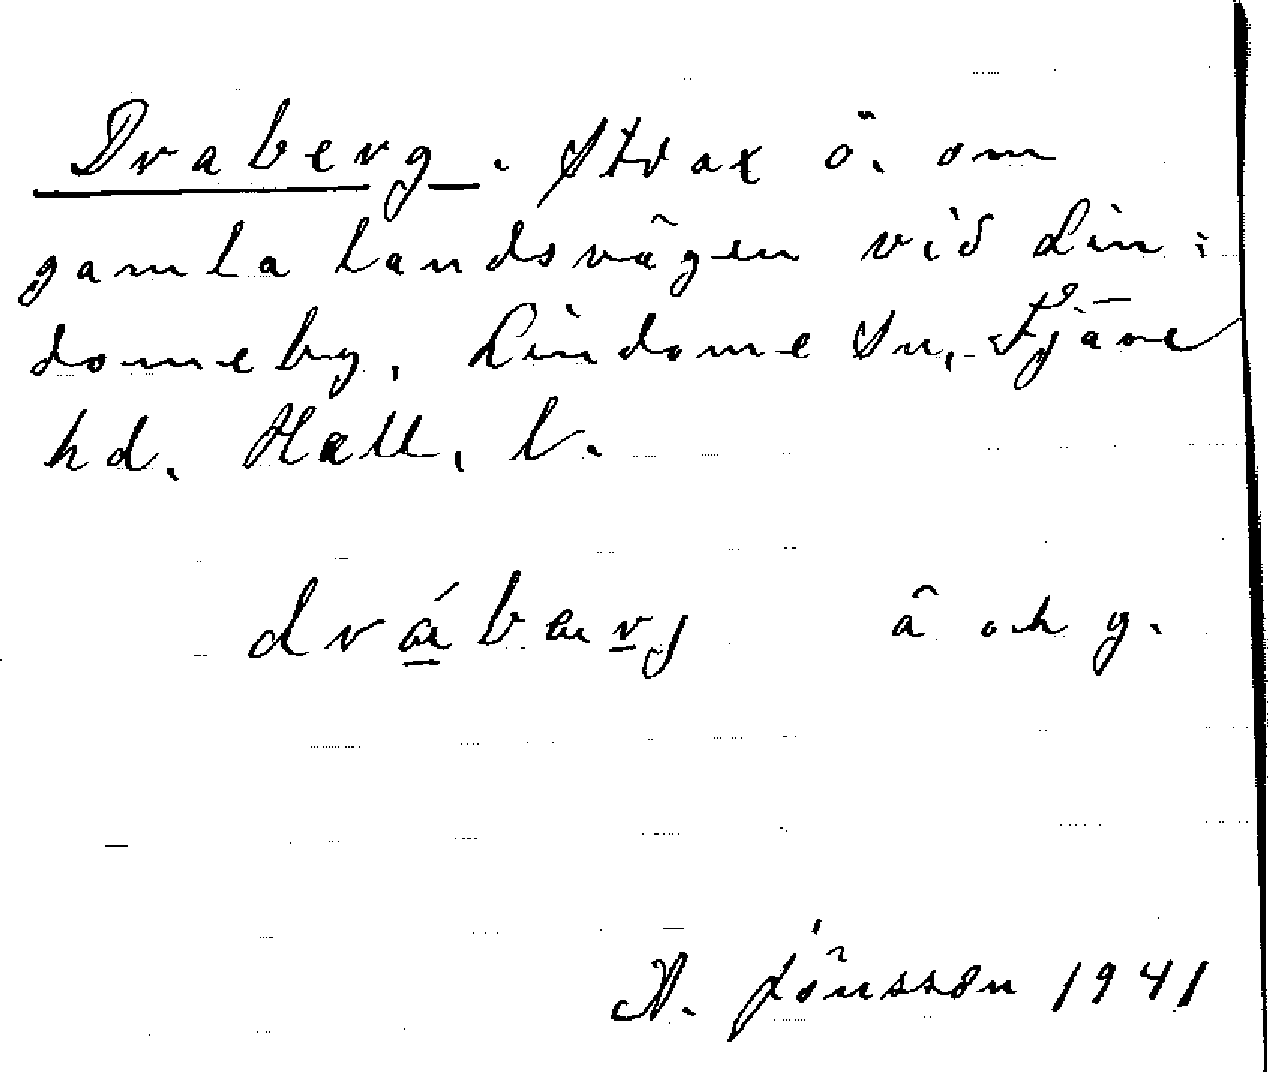 Draberg. Strax ö. om
gamla landsvägen vid Lin:
domeby, Lindome sn, Fjäre
hd. Hall. l.
drábærj å och g.
A. Jönsson 1941